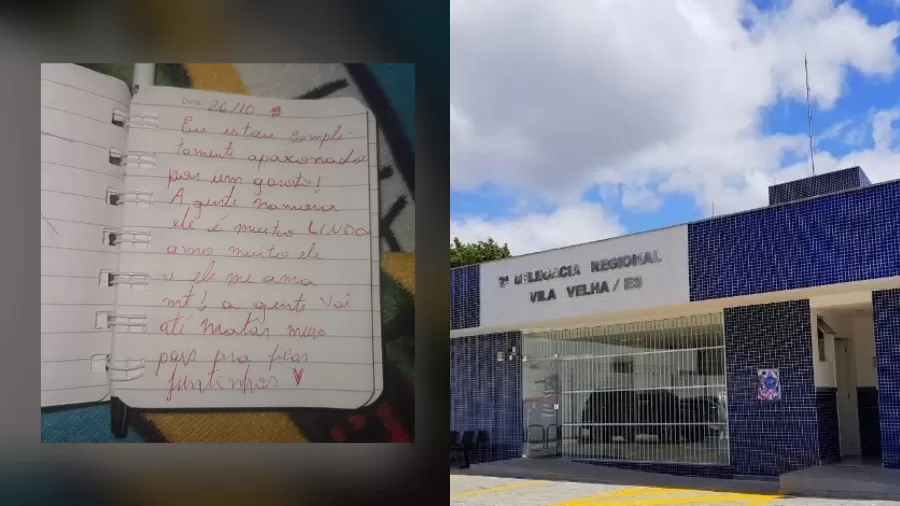 26/10
Eu estou compli-
tamente apaixonada
por um garoto!
A gente namora
ele é muito LINDO
amo muito ele
e ele me ama
mt! a gente vai
até matar meus
pais pra ficar
juntinhos ♥
2ª DELEGACIA REGIONAL
VILA VELHA / ES